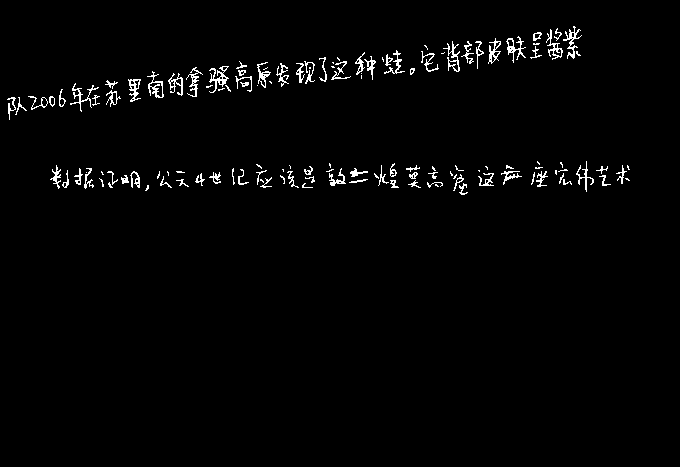 队2006年在苏里南的拿骚高原发现了这种蛙。它背部皮肤呈酱紫
数据证明,公元4世纪应该是敦煌莫高窟这座宏伟艺术